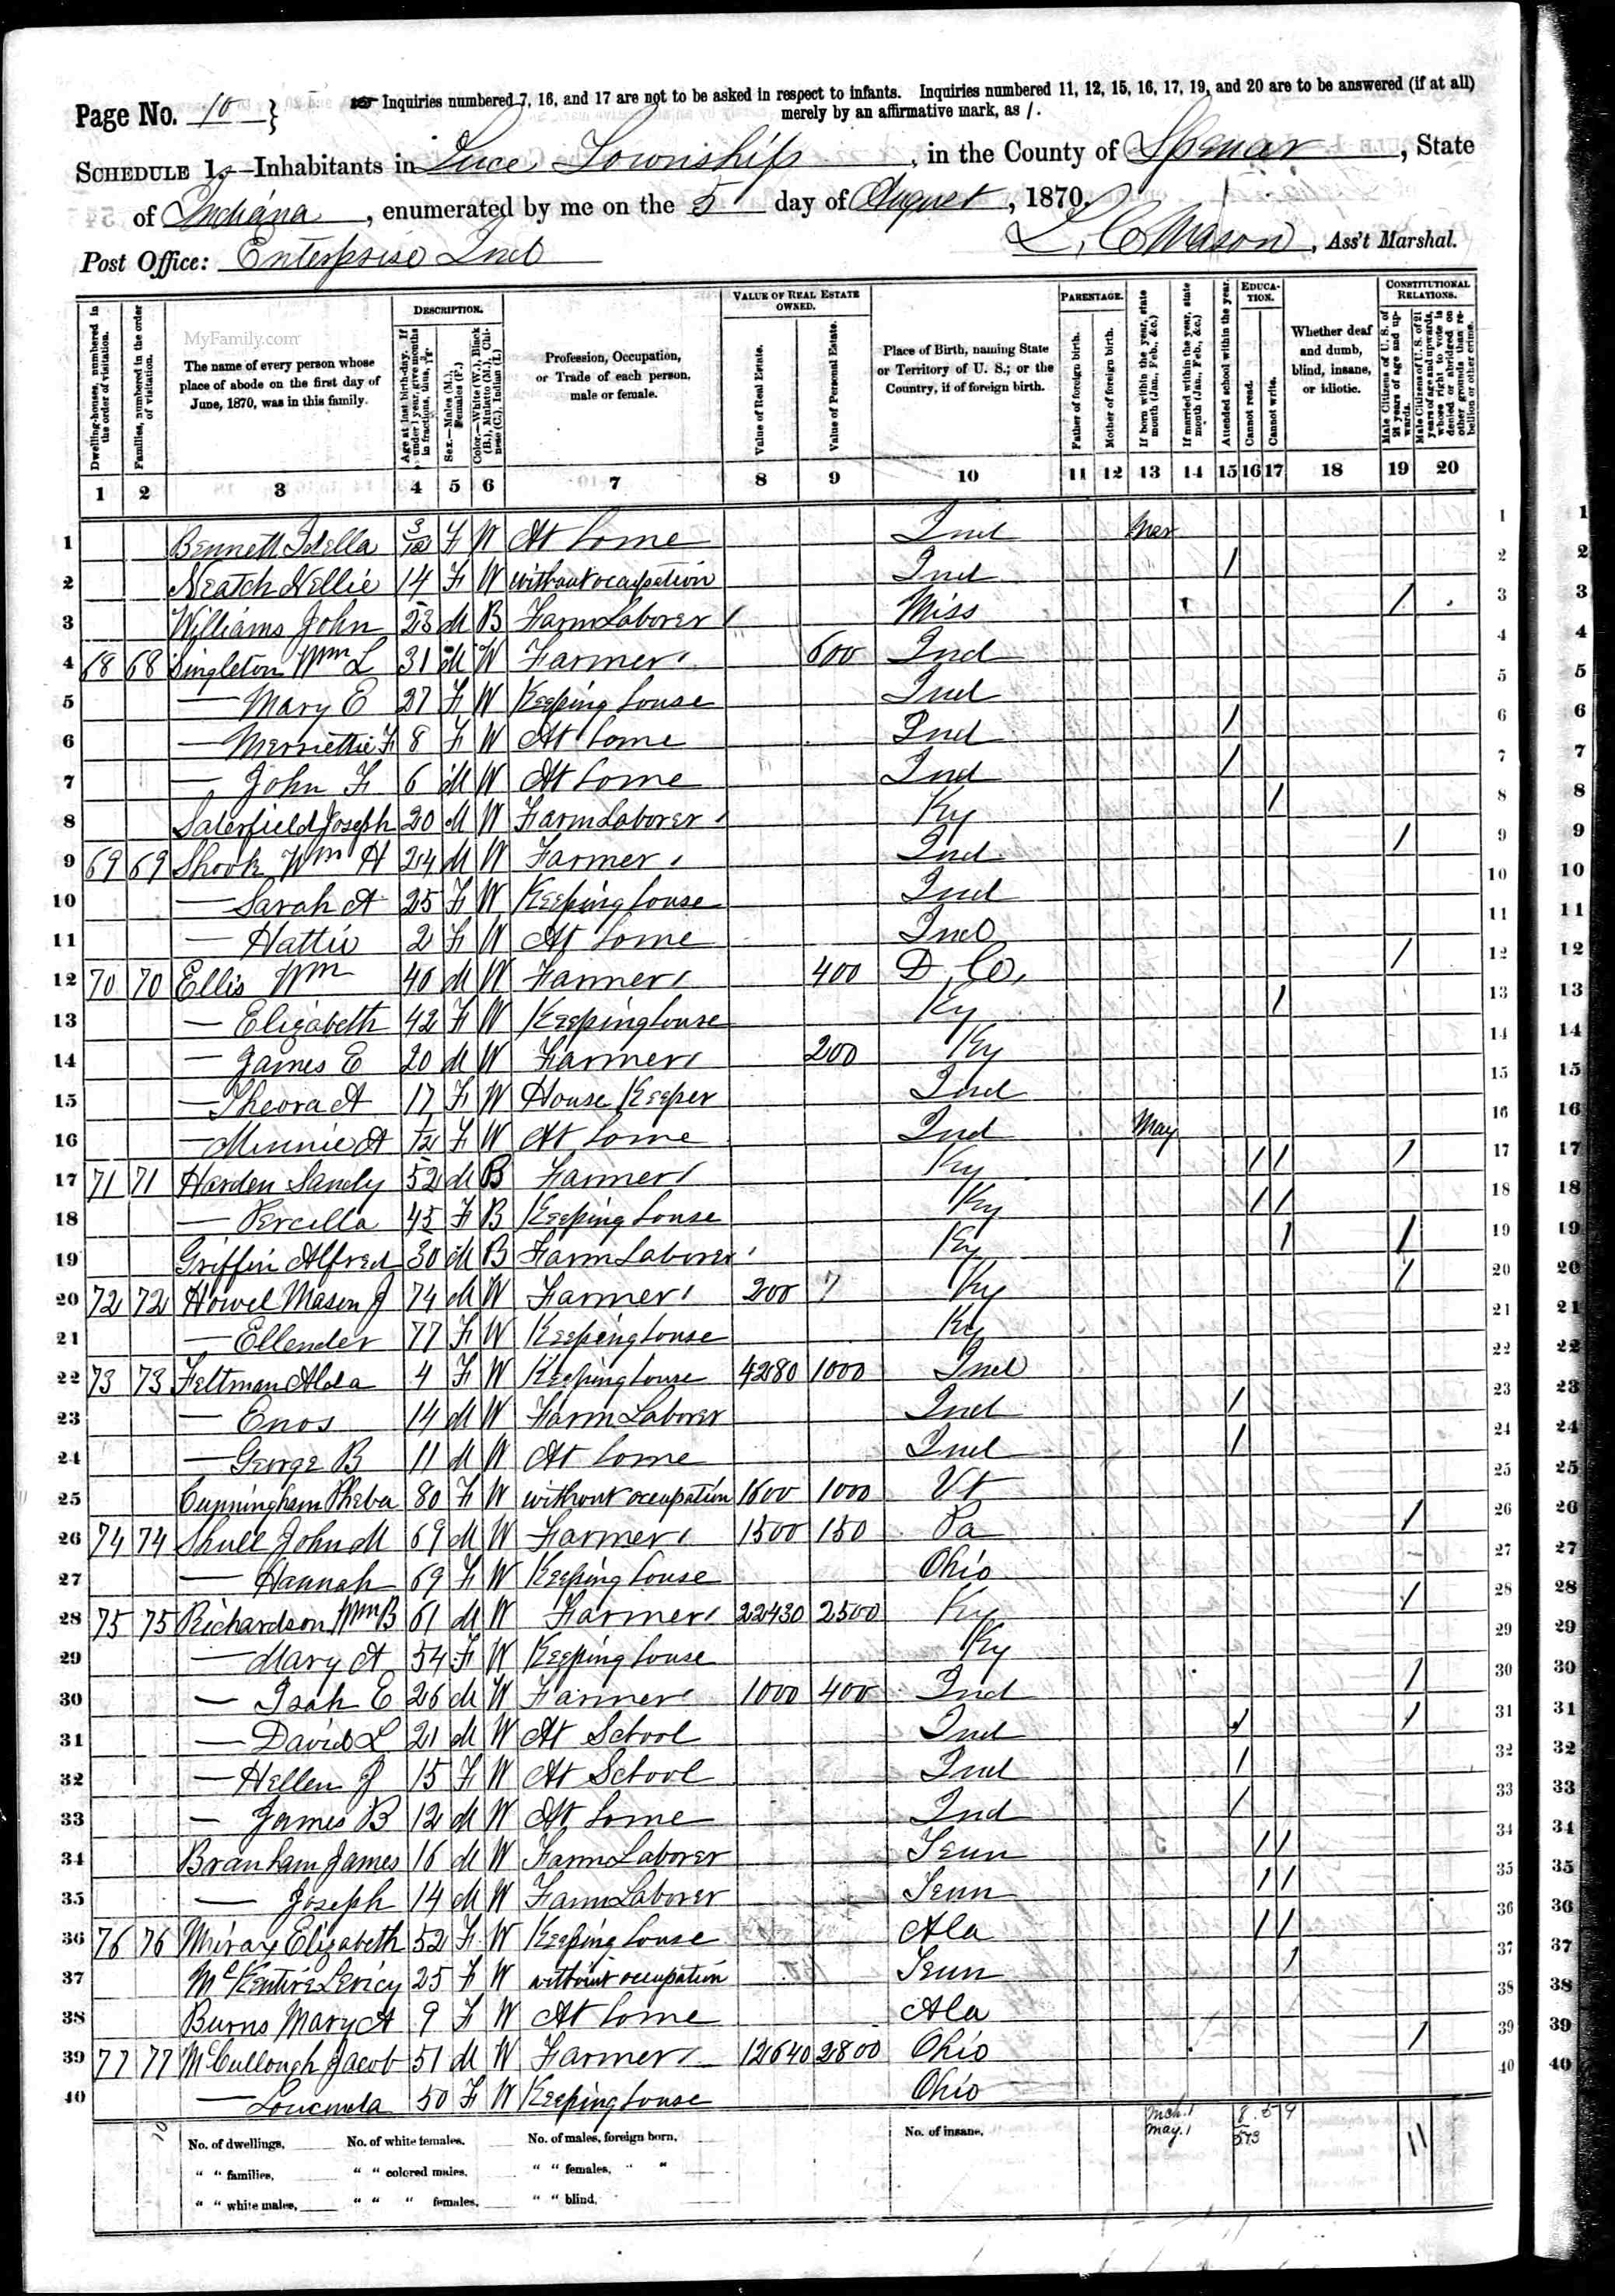 Page No. 10 } Inquiries numbered 7, 16, and 17 are not to be asked in respect to infants. Inquiries numbered 11, 12, 15, 16, 17, 19, and 20 are to be answered (if at all)
merely by an affirmative mark, as /.
SCHEDULE 1.—Inhabitants in Luce Township, in the County of Spencer, State
of Indiana, enumerated by me on the 5 day of August, 1870.
Post Office: Enterprise Ind L. C. Mason, Ass't Marshal.
MyFamily.com
Dwelling-houses, numbered in the order of visitation.
Families, numbered in the order of visitation.
The name of every person whose place of abode on the first day of June, 1870, was in this family.
DESCRIPTION.
Age at last birth-day. If under 1 year, give months in fractions, thus, 3/12.
Sex.—Males (M.), Females (F.)
Color.—White (W.), Black (B.), Mulatto (M.), Chinese (C.), Indian (I.)
Profession, Occupation, or Trade of each person, male or female.
VALUE OF REAL ESTATE OWNED.
Value of Real Estate.
Value of Personal Estate.
Place of Birth, naming State or Territory of U. S.; or the Country, if of foreign birth.
PARENTAGE.
Father of foreign birth.
Mother of foreign birth.
If born within the year, state month (Jan., Feb., &c.)
If married within the year, state month (Jan., Feb., &c.)
Attended school within the year.
EDUCATION.
Cannot read.
Cannot write.
Whether deaf and dumb, blind, insane, or idiotic.
CONSTITUTIONAL RELATIONS.
Male Citizens of U. S. of 21 years of age and upwards.
Male Citizens of U. S. of 21 years of age and upwards, whose right to vote is denied or abridged on other grounds than rebellion or other crime.
1 2 3 4 5 6 7 8 9 10 11 12 13 14 15 16 17 18 19 20
1 Bennett Idella 3/12 F W At home Ind Mar 1 1
2 Neatch Nellie 14 F W without occupation Ind / 2 2
3 Williams John 23 M B Farm Laborer Miss / 3 3
4 68 68 Singleton Wm L 31 M W Farmer 600 Ind 4 4
5 — Mary E 27 F W Keeping house Ind 5 5
6 — Merriettie F 8 F W At home Ind / 6 6
7 — John F 6 M W At home Ind / 7 7
8 Saterfield Joseph 20 M W Farm Laborer Ky / 8 8
9 69 69 Shook Wm H 24 M W Farmer Ind / 9 9
10 — Sarah A 25 F W Keeping house Ind 10 10
11 — Hattie 2 F W At home Ind 11 11
12 70 70 Ellis Wm 40 M W Farmer 400 D. Co. / 12 12
13 — Elizabeth 42 F W Keeping house Ky / 13 13
14 — James E 20 M W Farmer 200 Ky 14 14
15 — Theora A 17 F W House Keeper Ind 15 15
16 — Minnie A 1/12 F W At home Ind May 16 16
17 71 71 Harden Sandy 52 M B Farmer Ky / / / 17 17
18 — Percilla 45 F B Keeping house Ky / / 18 18
19 Griffin Alfred 30 M B Farm Laborer Ky / / 19 19
20 72 72 Howel Mason J 74 M W Farmer 200 Ky / 20 20
21 — Ellender 77 F W Keeping house Ky 21 21
22 73 73 Feltman Alda 4 F W Keeping house 4280 1000 Ind 22 22
23 — Enos 14 M W Farm Laborer Ind / 23 23
24 — George B 11 M W At home Ind / 24 24
25 Cunningham Pheba 80 F W without occupation 1600 1000 Vt 25 25
26 74 74 Shull John M 69 M W Farmer 1500 150 Pa / 26 26
27 — Hannah 69 F W Keeping house Ohio 27 27
28 75 75 Richardson Wm B 61 M W Farmer 22430 2500 Ky / 28 28
29 — Mary A 54 F W Keeping house Ky 29 29
30 — Isah E 26 M W Farmer 1000 400 Ind / 30 30
31 — David L 21 M W At School Ind / / 31 31
32 — Hellen J 15 F W At School Ind / 32 32
33 — James B 12 M W At home Ind / 33 33
34 Branham James 16 M W Farm Laborer Tenn / / 34 34
35 — Joseph 14 M W Farm Laborer Tenn / / 35 35
36 76 76 Elizabeth 52 F W Keeping house Ala / / 36 36
37 McKentire Levicy 25 F W without occupation Tenn / 37 37
38 Burns Mary A 9 F W At home Ala 38 38
39 77 77 McCullough Jacob 51 M W Farmer 12640 2800 Ohio / 39 39
40 — Loucinda 50 F W Keeping house Ohio 40 40
No. of dwellings, No. of white females, No. of males, foreign born, No. of insane, Mch. 1 May. 1 8 5 9 11
" " families, " " colored males, " " females, " "
" " white males, " " " females, " " blind,